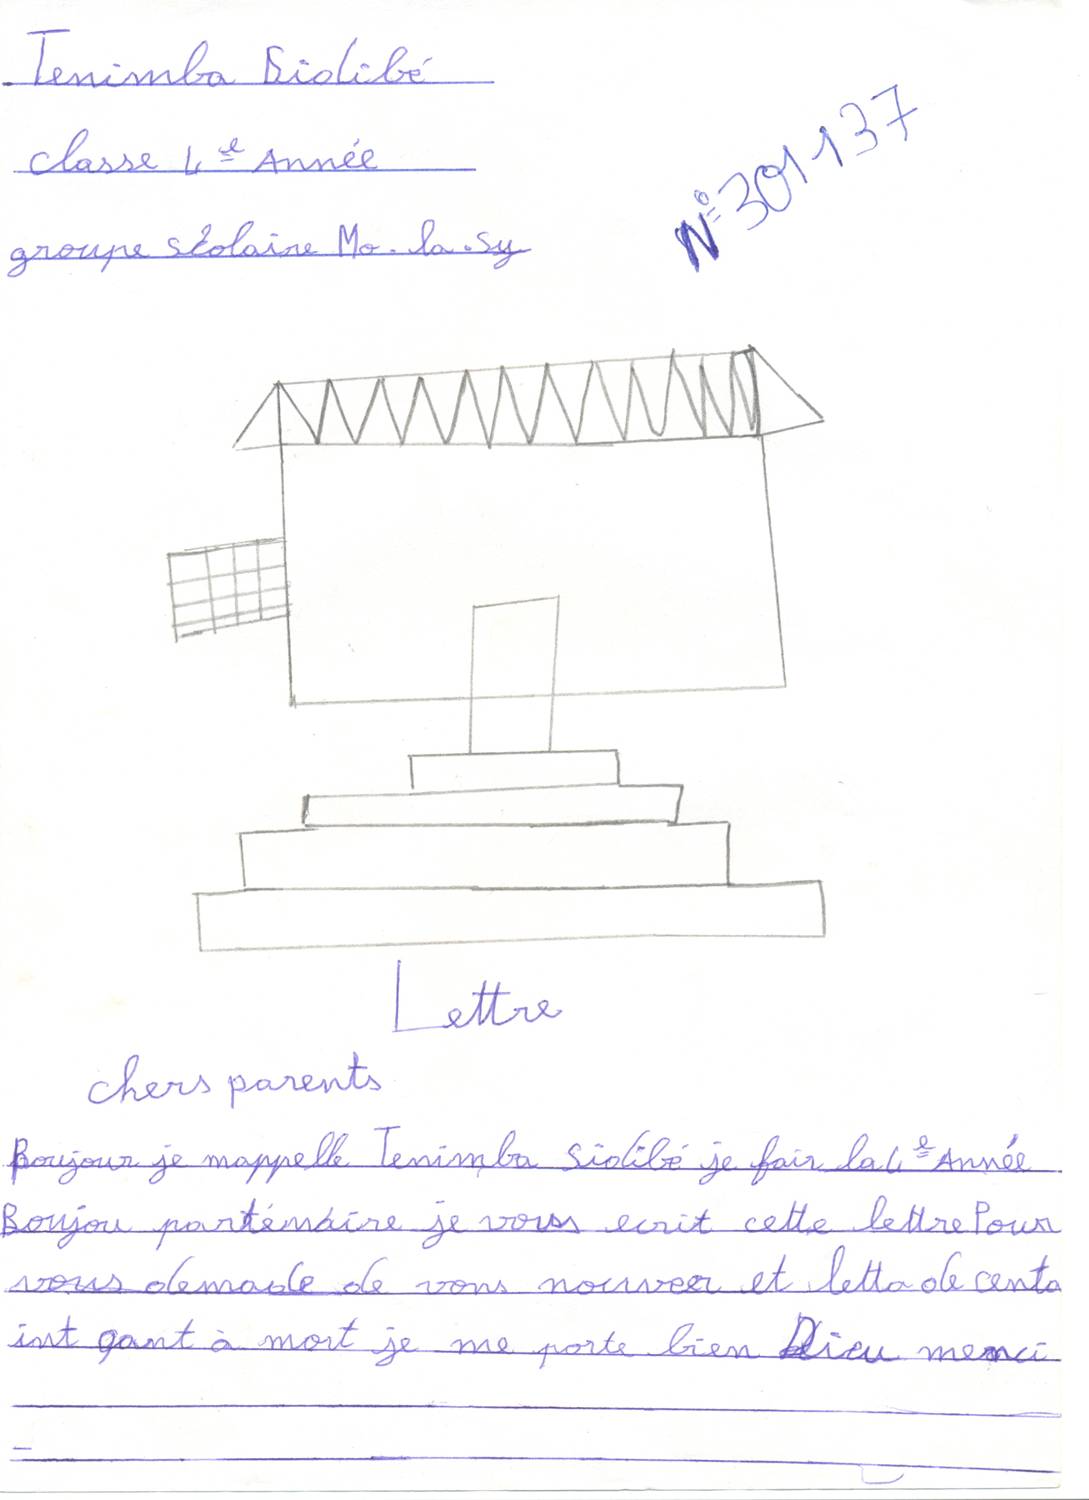 Tenimba Sidibé
classe 4e Année
groupe scolaire Mo.la.sy
N° 301-137
Lettre
chers parents
Boujour je mappelle Tenimba Sidibé je fair la 4e Année
Boujou parténaire je vous ecrit cette lettre Pour
vous demade de vons nouveer et letta de centa
int gant à mort je me porte bien Dieu menci